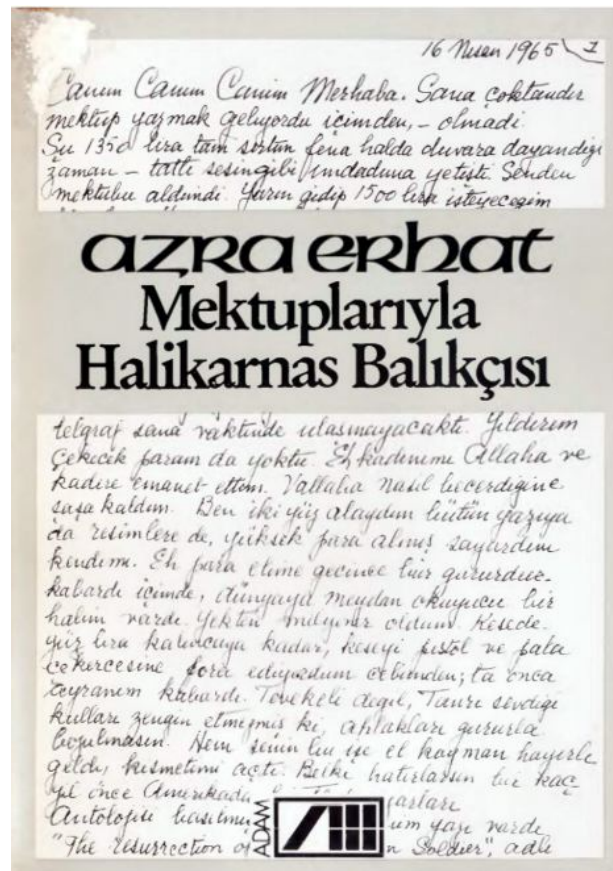 16 Nisan 1965 1
Canım Canım Canım Merhaba. Sana çoktandır
mektup yazmak geliyordu içimden, – olmadi.
Şu 1350 lira tam sırtım fena halda duvara dayandığı
zaman – tatlı sesin gibi imdadıma yetişti. Senden
mektubu aldımdi. Yarın gidip 1500 lira isteyeceğim
azra erhat
Mektuplarıyla
Halikarnas Balıkçısı
telgraf sana vaktinde ulaşmayacaktı. Yıldırım
Çekecek param da yoktu. Eh kadınımı Allaha ve
kadere emanet ettim. Vallaha nasıl becerdiğine
şaşa kaldım. Ben iki yüz alaydım bütün yazıya
da resimlere de, yüksek para almış sayardım
kendimi. Eh para elime geçince bir gururdur
kabardı içimde, dünyaya meydan okuyucu bir
halim vardı. Yekten milyoner oldum. Kesede
yüz lira kalıncaya kadar, keseyi pistol ve pala
çekercesine fora ediyordum cebimden; ta onca
kabardı. Tevekeli değil, Tanrı sevdiği
kulları zengin etmezmiş ki, ahlakları gururla
bozulmasın. Hem senin bu işe el koyman hayırlı
geldi, kısmetimi açtı. Belki hatırlarsın bir kaç
yıl önce Amerikada
Antolojisi yazı vardı
"The Resurrection of Soldier", adlı
ADAM